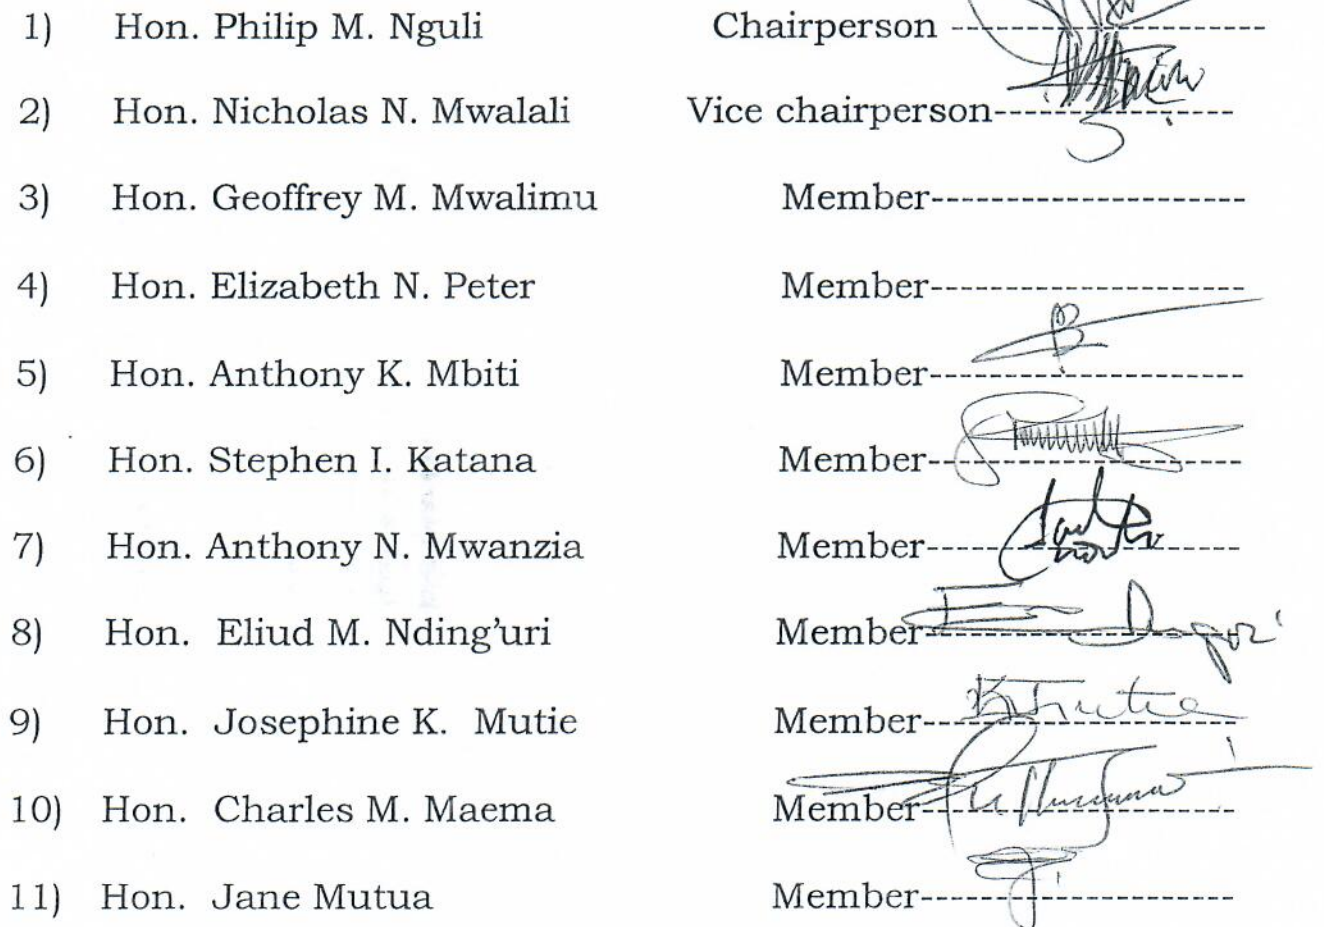 1) Hon. Philip M. Nguli Chairperson ---------------------
2) Hon. Nicholas N. Mwalali Vice chairperson----------------
3) Hon. Geoffrey M. Mwalimu Member---------------------
4) Hon. Elizabeth N. Peter Member---------------------
5) Hon. Anthony K. Mbiti Member---------------------
6) Hon. Stephen I. Katana Member---------------------
7) Hon. Anthony N. Mwanzia Member---------------------
8) Hon. Eliud M. Nding'uri Member---------------------
9) Hon. Josephine K. Mutie Member---------------------
10) Hon. Charles M. Maema Member---------------------
11) Hon. Jane Mutua Member---------------------